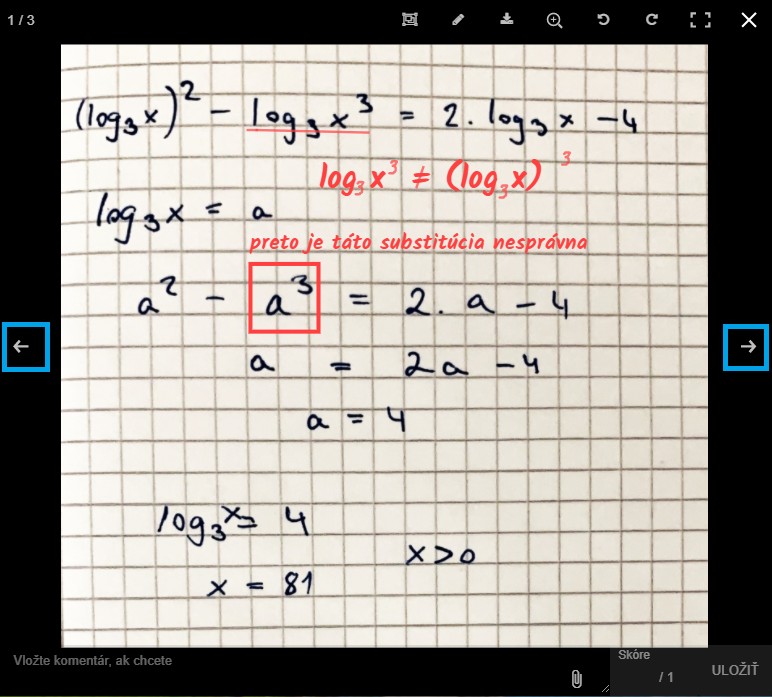 1 / 3
(log₃x)² - log₃x³ = 2. log₃x - 4
log₃x³ ≠ (log₃x)³
log₃x = a
preto je táto substitúcia nesprávna
a² - a³ = 2. a - 4
a = 2a - 4
a = 4
log₃x = 4
x > 0
x = 81
Vložte komentár, ak chcete
Skóre
/ 1
ULOŽIŤ